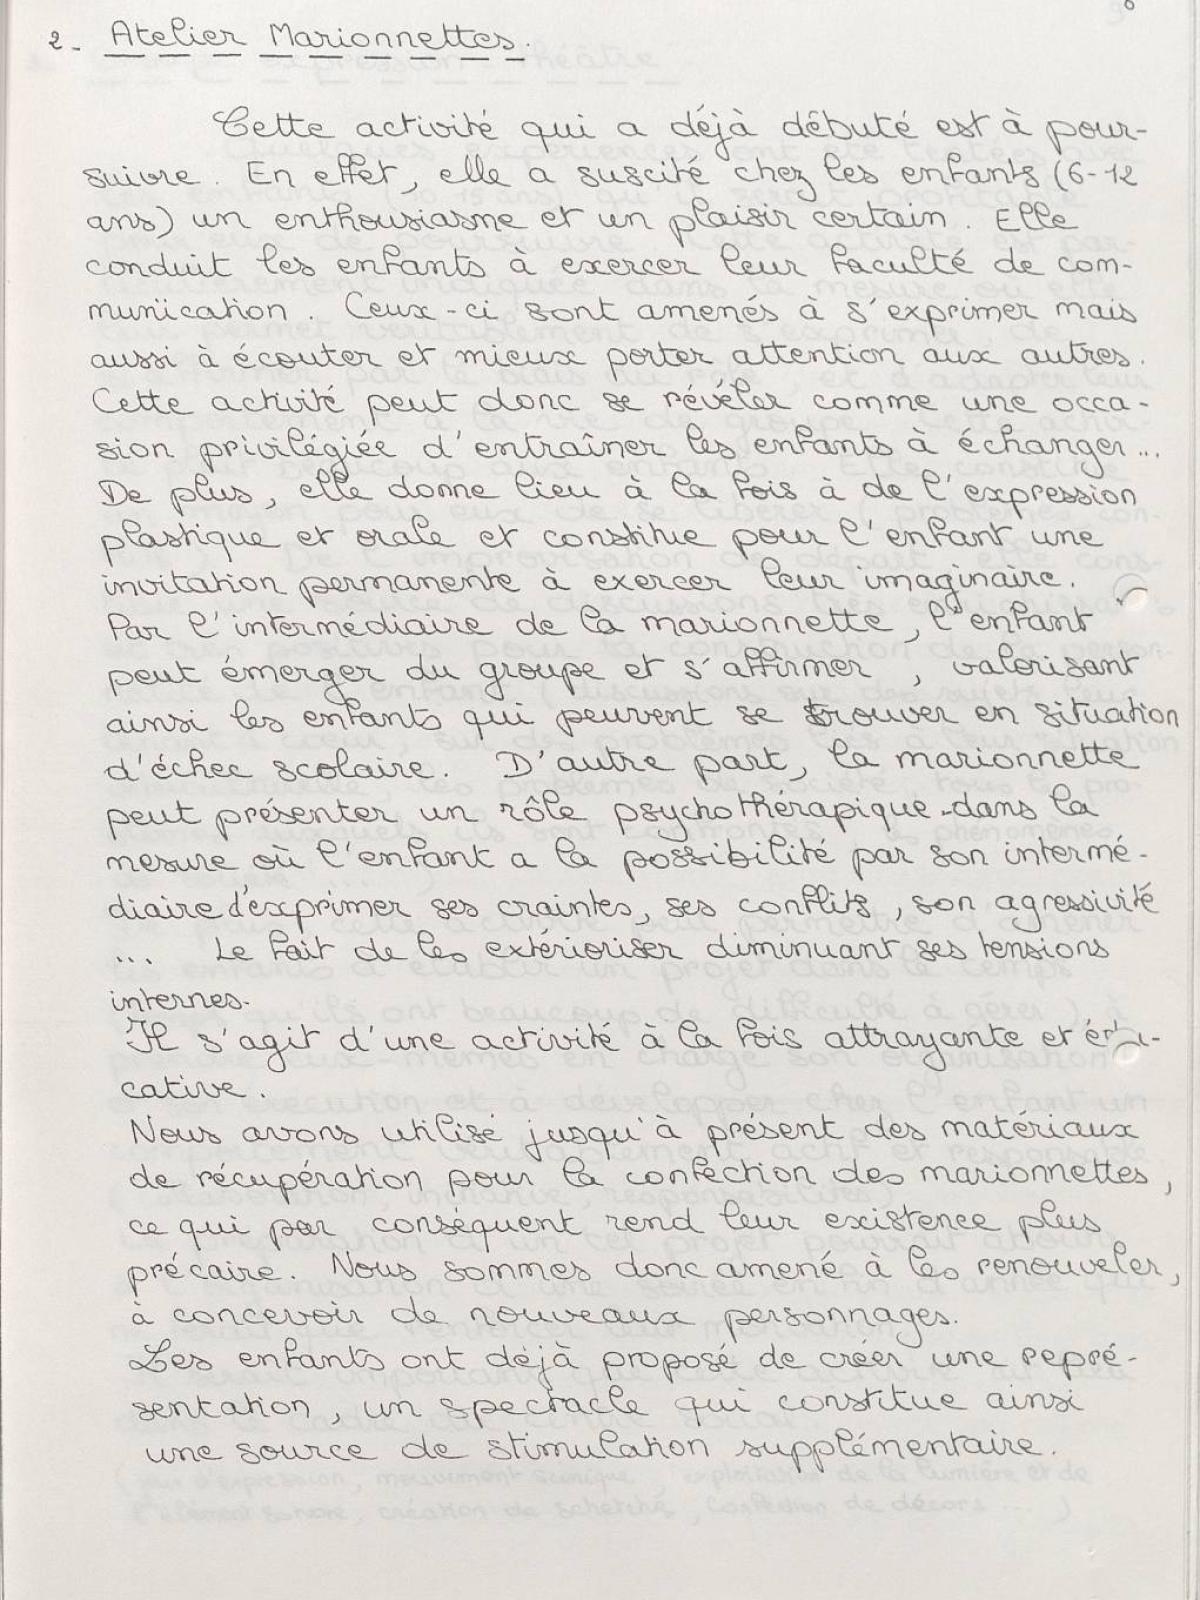 2. Atelier Marionnettes.
Cette activité qui a déjà débuté est à pour-
suivre. En effet, elle a suscité chez les enfants (6-12
ans) un enthousiasme et un plaisir certain. Elle
conduit les enfants à exercer leur faculté de com-
munication. Ceux-ci sont amenés à s'exprimer mais
aussi à écouter et mieux porter attention aux autres.
Cette activité peut donc se révéler comme une occa-
sion privilégiée d'entraîner les enfants à échanger...
De plus, elle donne lieu à la fois à de l'expression
plastique et orale et constitue pour l'enfant une
invitation permanente à exercer leur imaginaire.
Par l'intermédiaire de la marionnette, l'enfant
peut émerger du groupe et s'affirmer, valorisant
ainsi les enfants qui peuvent se trouver en situation
d'échec scolaire. D'autre part, la marionnette
peut présenter un rôle psychothérapique dans la
mesure où l'enfant a la possibilité par son intermé-
diaire d'exprimer ses craintes, ses conflits, son agressivité
... Le fait de les extérioriser diminuant ses tensions
internes.
Il s'agit d'une activité à la fois attrayante et édu-
cative.
Nous avons utilisé jusqu'à présent des matériaux
de récupération pour la confection des marionnettes,
ce qui par conséquent rend leur existence plus
précaire. Nous sommes donc amené à les renouveler,
à concevoir de nouveaux personnages.
Les enfants ont déjà proposé de créer une repré-
sentation, un spectacle qui constitue ainsi
une source de stimulation supplémentaire.